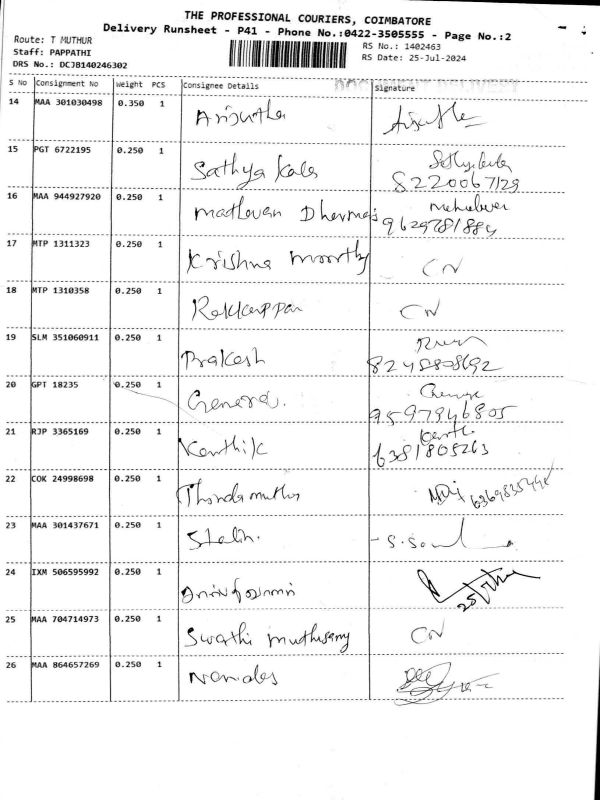 THE PROFESSIONAL COURIERS, COIMBATORE
Delivery Runsheet - P41 - Phone No.:0422-3505555 - Page No.:2
Route: T MUTHUR
Staff: PAPPATHI
DRS No.: DCJB140246302
RS No.: 1402463
RS Date: 25-Jul-2024
DOCUMENT DELIVERY
S No Consignment No Weight PCS Consignee Details Signature
14 MAA 301030498 0.350 1
15 PGT 6722195 0.250 1 Sathya Kala
8220067129
16 MAA 944927920 0.250 1 Madhavan Dhermaj
9629781884
17 MTP 1311323 0.250 1 Krishna moorthy CN
18 MTP 1310358 0.250 1 CN
19 SLM 351060911 0.250 1 Prakash
20 GPT 18235 0.250 1
9597946805
21 RJP 3365169 0.250 1 Kanthik
6381805263
22 COK 24998698 0.250 1
23 MAA 301437671 0.250 1 Stalin.
24 IXM 506595992 0.250 1
25 MAA 704714973 0.250 1 Swathi muthusamy CN
26 MAA 864657269 0.250 1